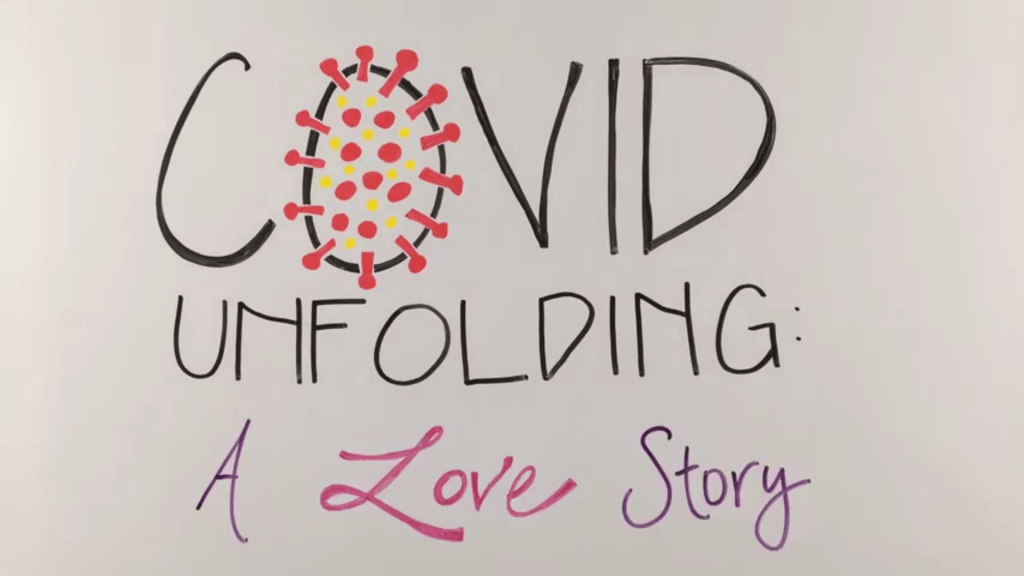 COVID
UNFOLDING:
A Love Story